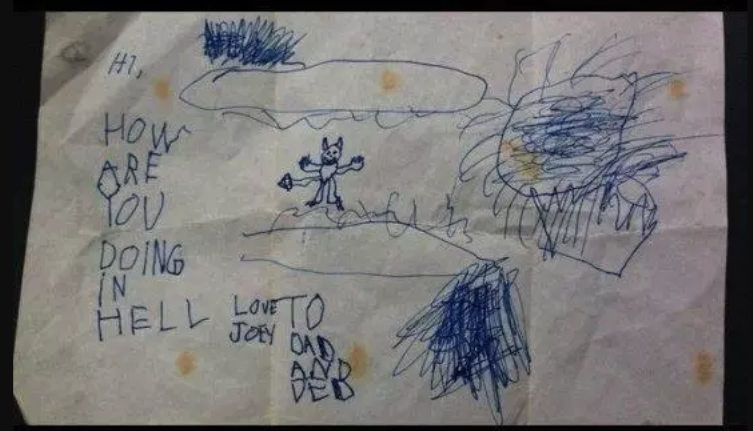 HI,
HOW
ARE
YOU
DOING
IN
HELL
LOVE
JOEY
TO
DAD
AND
DEB